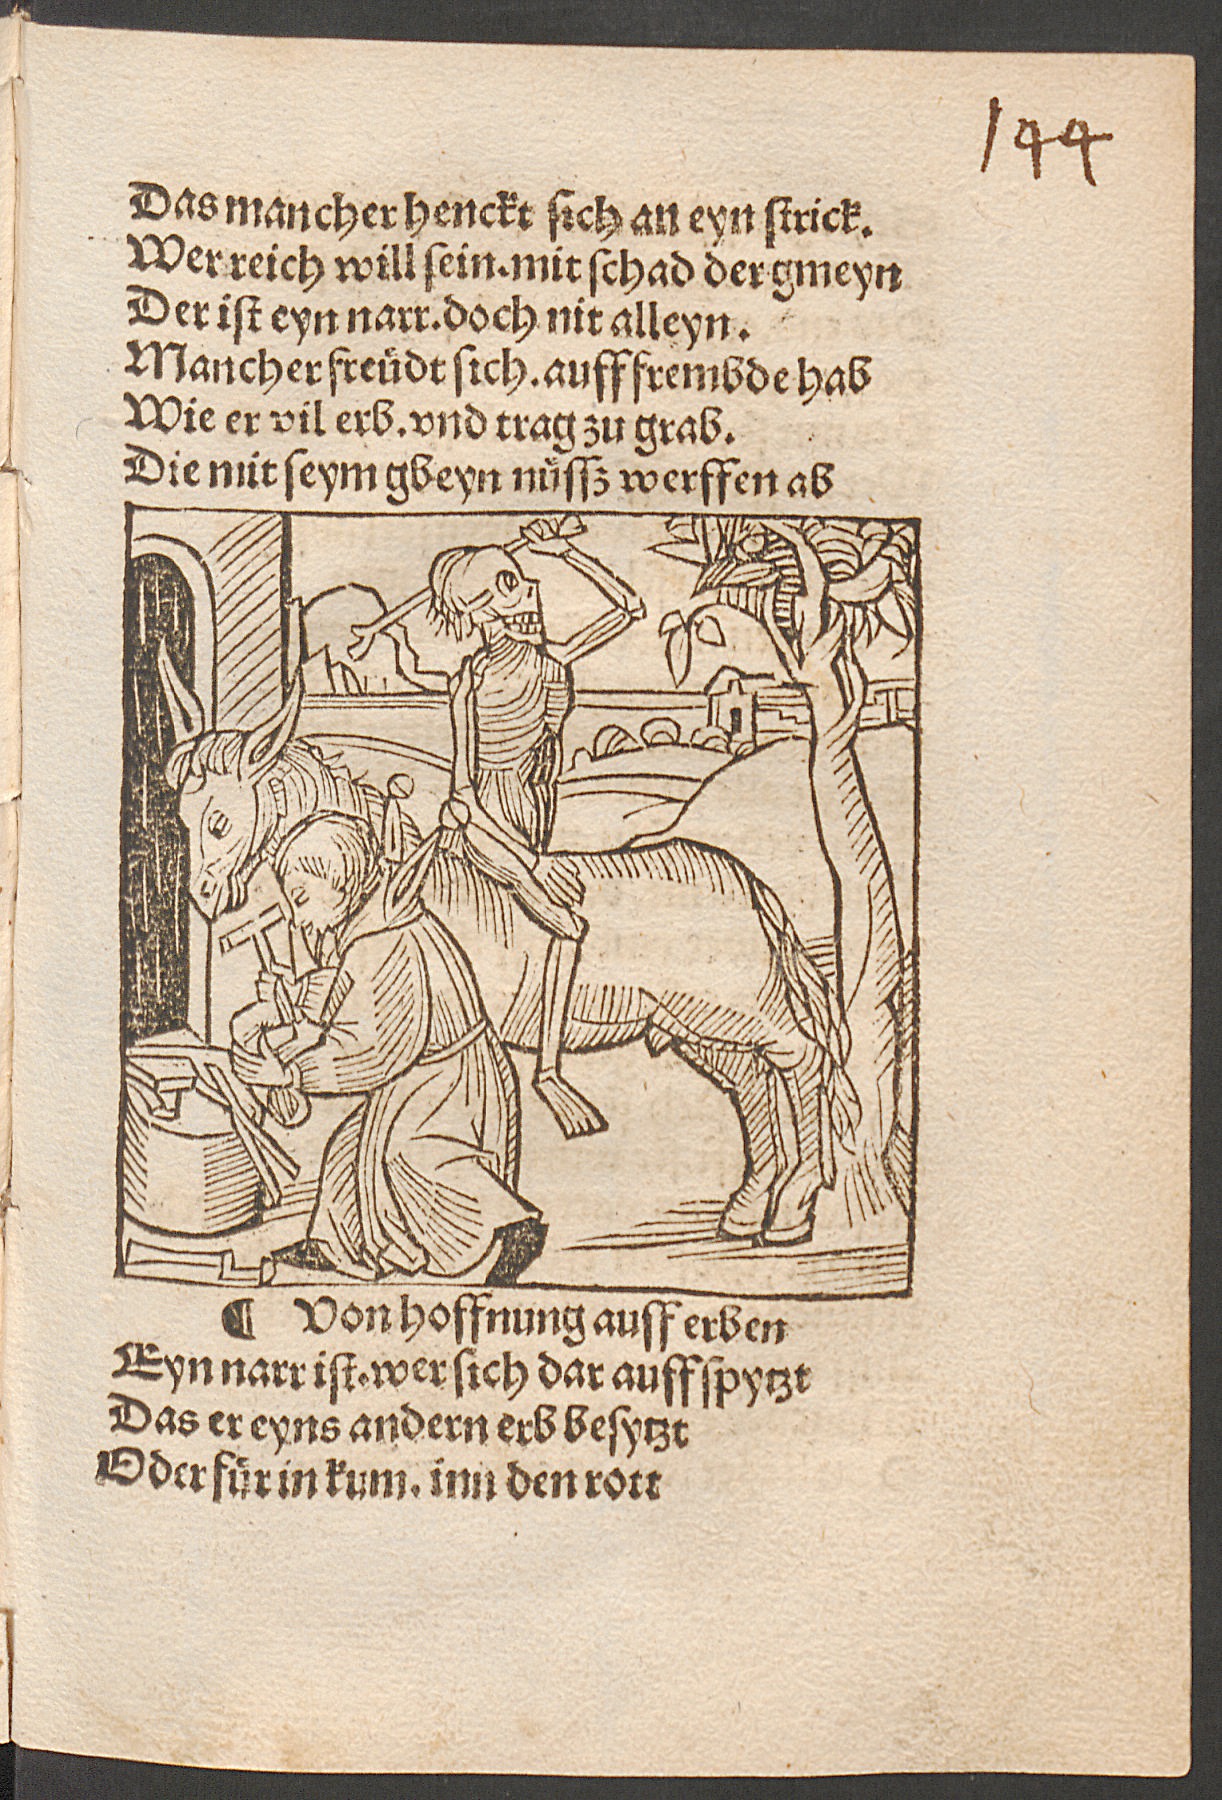 144
Das mancher henckt sich an eyn strick.
Wer reich will sein. mit schad der gmeyn
Der ist eyn narr. doch nit alleyn.
Mancher freüdt sich. auff frembde hab
Wie er vil erb. vnd trag zu grab.
Die mit seym gbeyn nüssz werffen ab
¶ Von hoffnung auff erben
Eyn narr ist. wer sich dar auff spytzt
Das er eyns andern erb besytzt
Oder für in kum. inn den rott